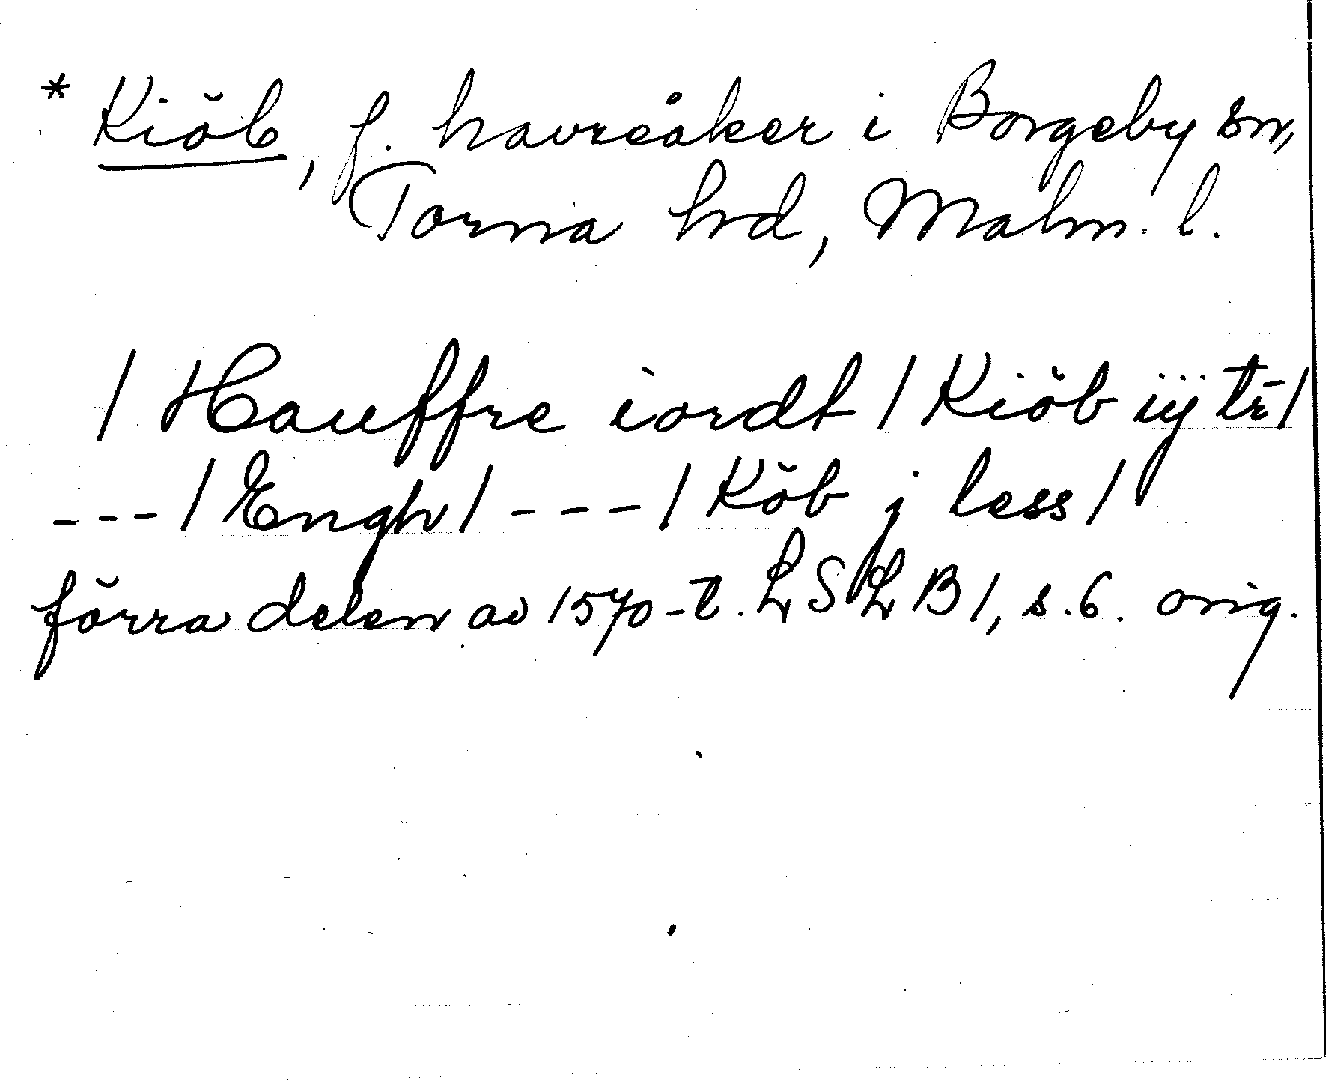 * Kiöb, f. havreåker i Borgeby sn,
Torna hd, Malm. l.
/ Hauffre iordt / Kiöb iÿ tr̄ /
--- / Engh / --- / Köb j less /
förra delen av 1570-t. LSLB 1, s. 6. orig.